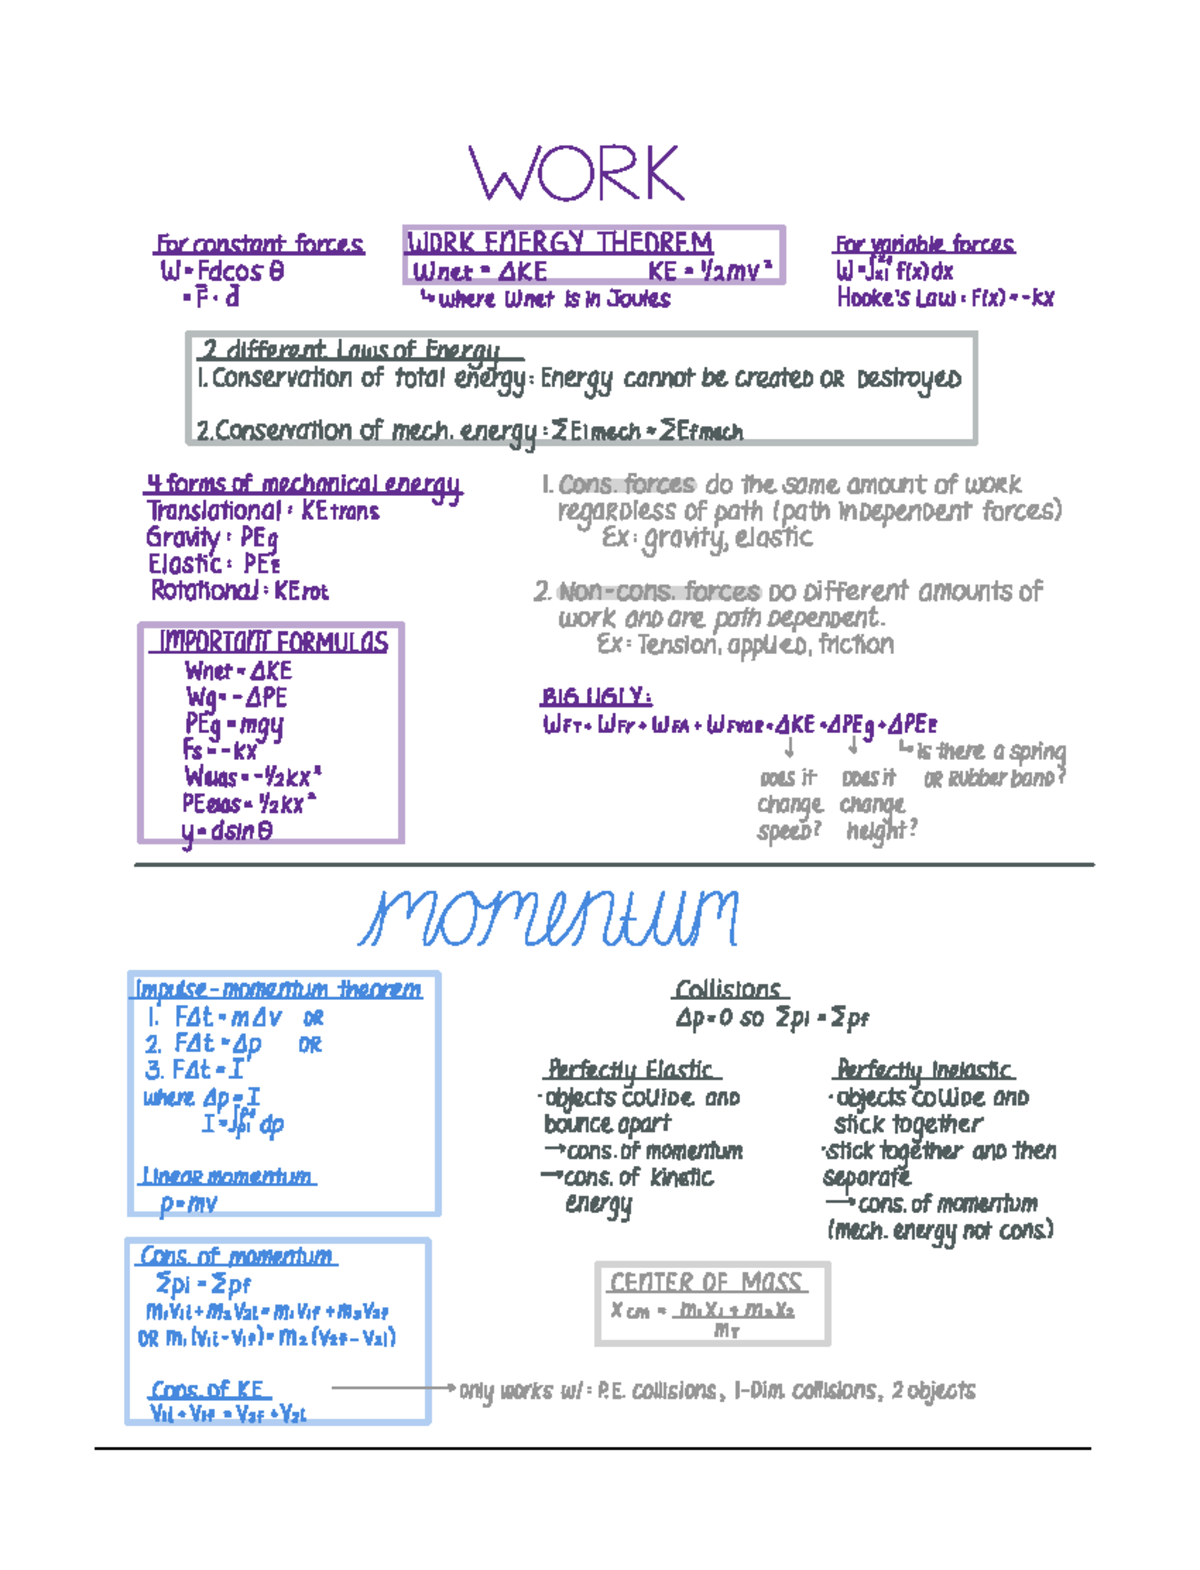 WORK
For constant forces
W = Fdcos θ
= F⃗ · d⃗
WORK ENERGY THEOREM
Wnet = ΔKE KE = 1/2mv²
↳ where Wnet is in Joules
For variable forces
W = ∫ f(x)dx
Hooke's Law : F(x) = -kx
2 different Laws of Energy
1. Conservation of total energy: Energy cannot be created OR DestroyeD
2. Conservation of mech. energy : ΣEimech = ΣEfmech
4 forms of mechanical energy
Translational : KEtrans
Gravity : PEg
Elastic : PEE
Rotational : KErot
1. Cons. forces do the same amount of work
regarDless of path (path inDepenDent forces)
Ex: gravity, elastic
2. Non-cons. forces DO Different amounts of
work anD are path DepenDent.
Ex: Tension, applieD, friction
IMPORTANT FORMULAS
Wnet = ΔKE
Wg = - ΔPE
PEg = mgy
Fs = -kx
Welas = -1/2kx²
PEelas = 1/2kx²
y = dsin θ
BIG UGLY:
WFT + WFf + WFA + WFvar = ΔKE + ΔPEg + ΔPEE
↓ ↓ ↳ is there a spring
Does it Does it OR Rubber banD?
change change
speeD? height?
momentum
Impulse-momentum theorem
1. FΔt = mΔv OR
2. FΔt = Δp OR
3. FΔt = I
where Δp = I
I = ∫ dp
Linear momentum
p = mv
Collisions
Δp = 0 so Σpi = Σpf
Perfectly Elastic
· objects colliDe anD
bounce apart
→ cons. of momentum
→ cons. of kinetic
energy
Perfectly Inelastic
· objects colliDe anD
stick together
· stick together anD then
separate
→ cons. of momentum
(mech. energy not cons.)
Cons. of momentum
Σpi = Σpf
m₁v₁i + m₂v₂i = m₁v₁f + m₂v₂f
OR m₁(v₁i - v₁f) = m₂(v₂f - v₂i)
Cons. of KE
v₁i + v₁f = v₂f + v₂i
CENTER OF MASS
xcm = m₁x₁ + m₂x₂
mT
→ only works w/: P.E. collisions, 1-Dim. collisions, 2 objects